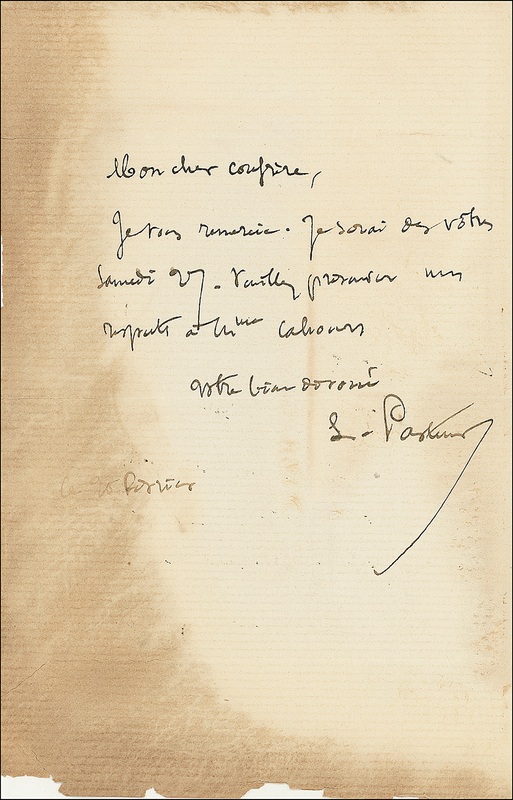 Mon cher confrère,
Je vous remercie. Je serai des vôtres
Samedi 27. Veuillez présenter mes
respects à Mme Cahours
Votre bien dévoué
L. Pasteur
février